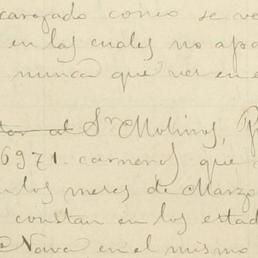 cargado como se ve
en las cuales no apa
nunca que ver en e
tar al Sr Molinos, P
6971. carneros que
en los meses de Marzo
constan en los estad
Nava en el mismo